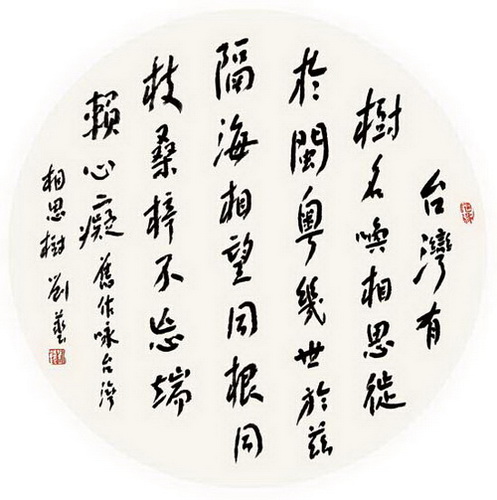 台灣有
樹名喚相思徙
於閩粵幾世於茲
隔海相望同根同
枝桑梓不忘端
賴心癡舊作咏台灣
相思樹劉藝